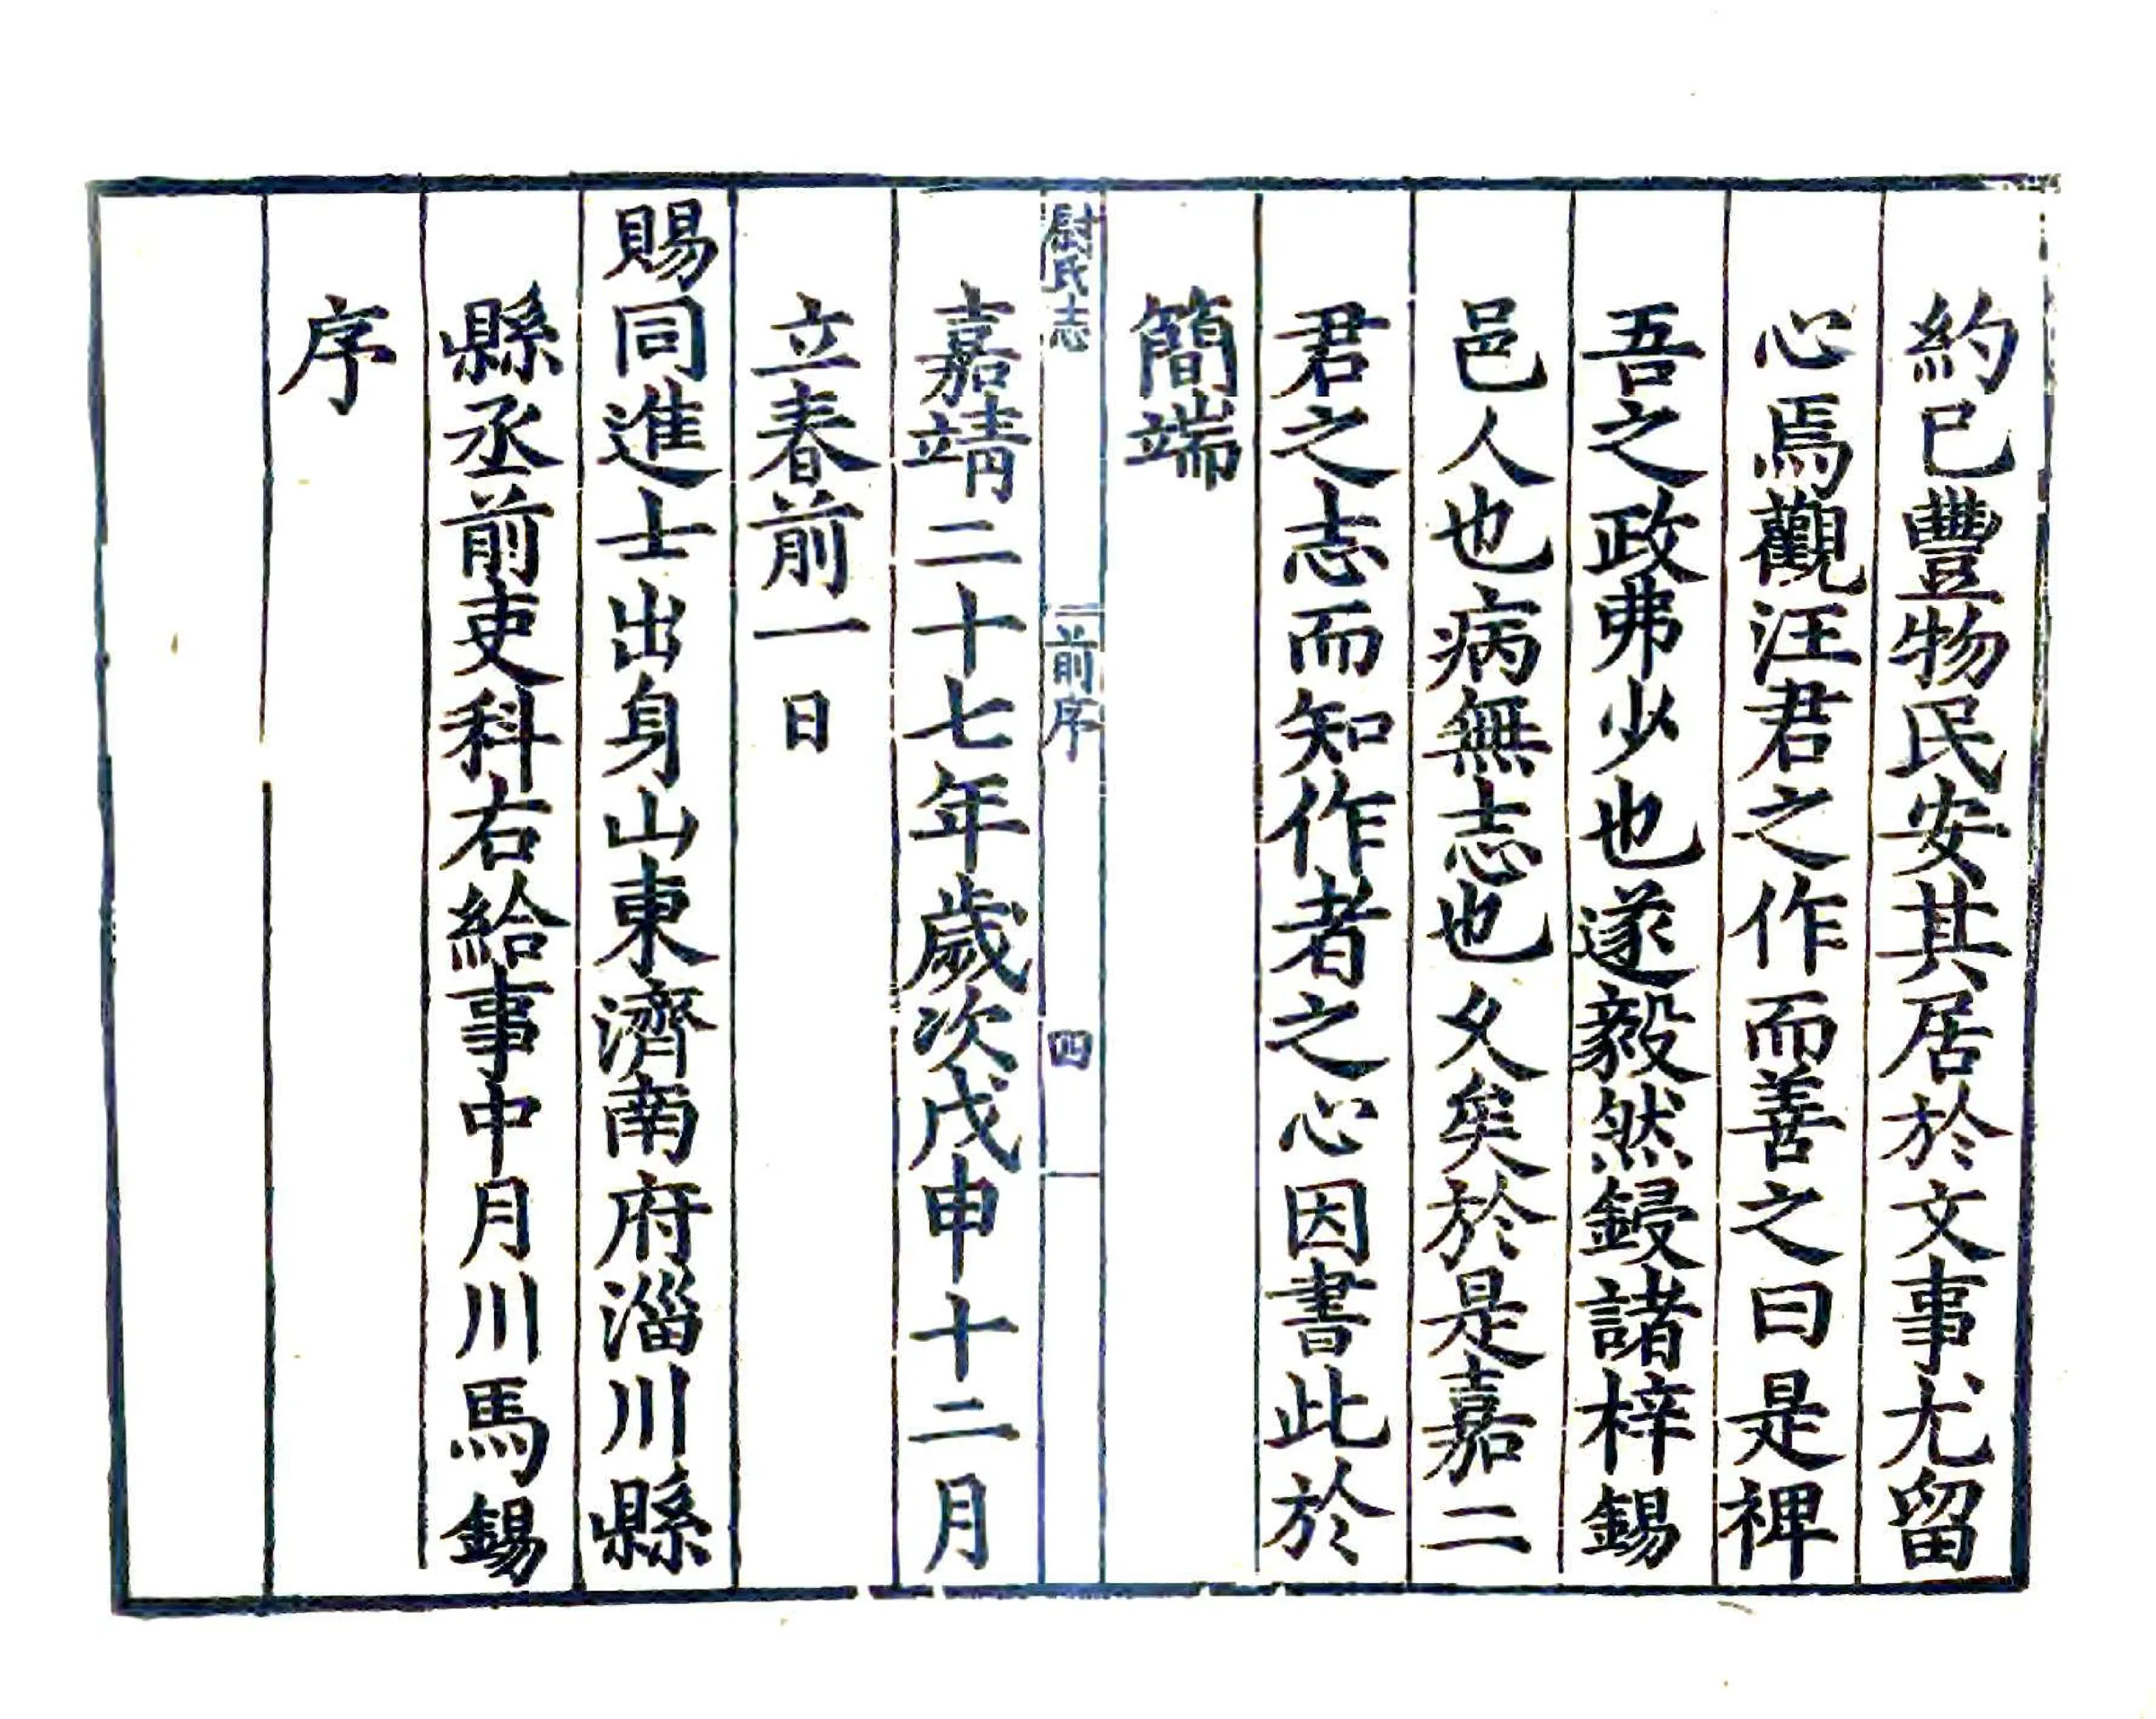 約已豐物民安其居於文事尤留
心焉觀汪君之作而善之曰是裨
吾之政弗少也遂毅然鋟諸梓錫
邑人也病無志也久矣於是嘉二
君之志而知作者之心因書此於
簡端
尉氏志
前序
四
嘉靖二十七年歲次戊申十二月
立春前一日
賜同進士出身山東濟南府淄川縣
縣丞前吏科右給事中月川馬錫
序